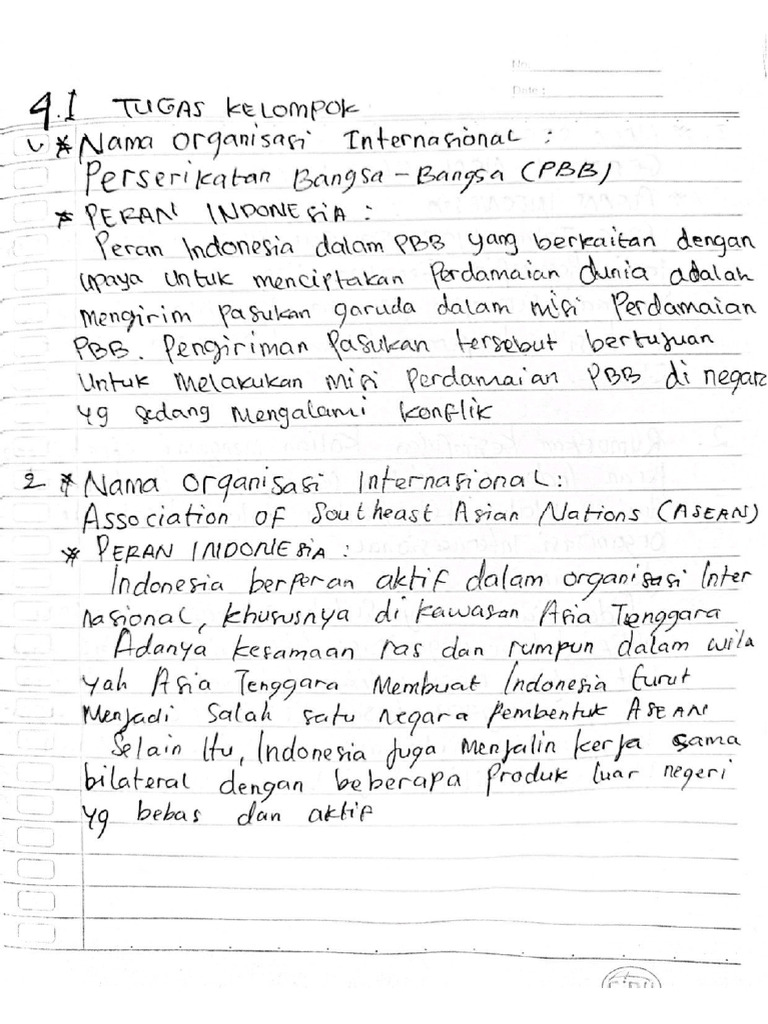 No.
Date:
4.1 TUGAS KELOMPOK
1 * Nama Organisasi Internasional :
Perserikatan Bangsa-Bangsa (PBB)
* PERAN INDONESIA :
Peran Indonesia dalam PBB yang berkaitan dengan
upaya untuk menciptakan Perdamaian dunia adalah
mengirim pasukan garuda dalam misi Perdamaian
PBB. Pengiriman Pasukan tersebut bertujuan
Untuk Melakukan misi Perdamaian PBB di negara
yg sedang Mengalami konflik
2 * Nama Organisasi Internasional :
Association OF Southeast Asian Nations (ASEAN)
* PERAN INDONESIA :
Indonesia berperan aktif dalam organisasi Inter
nasional, khususnya di kawasan Asia Tenggara
Adanya kesamaan ras dan rumpun dalam wila
yah Asia Tenggara Membuat Indonesia turut
Menjadi Salah satu negara Pembentuk ASEAN
Selain Itu, Indonesia Juga Menjalin kerja sama
bilateral dengan beberapa Produk luar negeri
yg bebas dan aktif